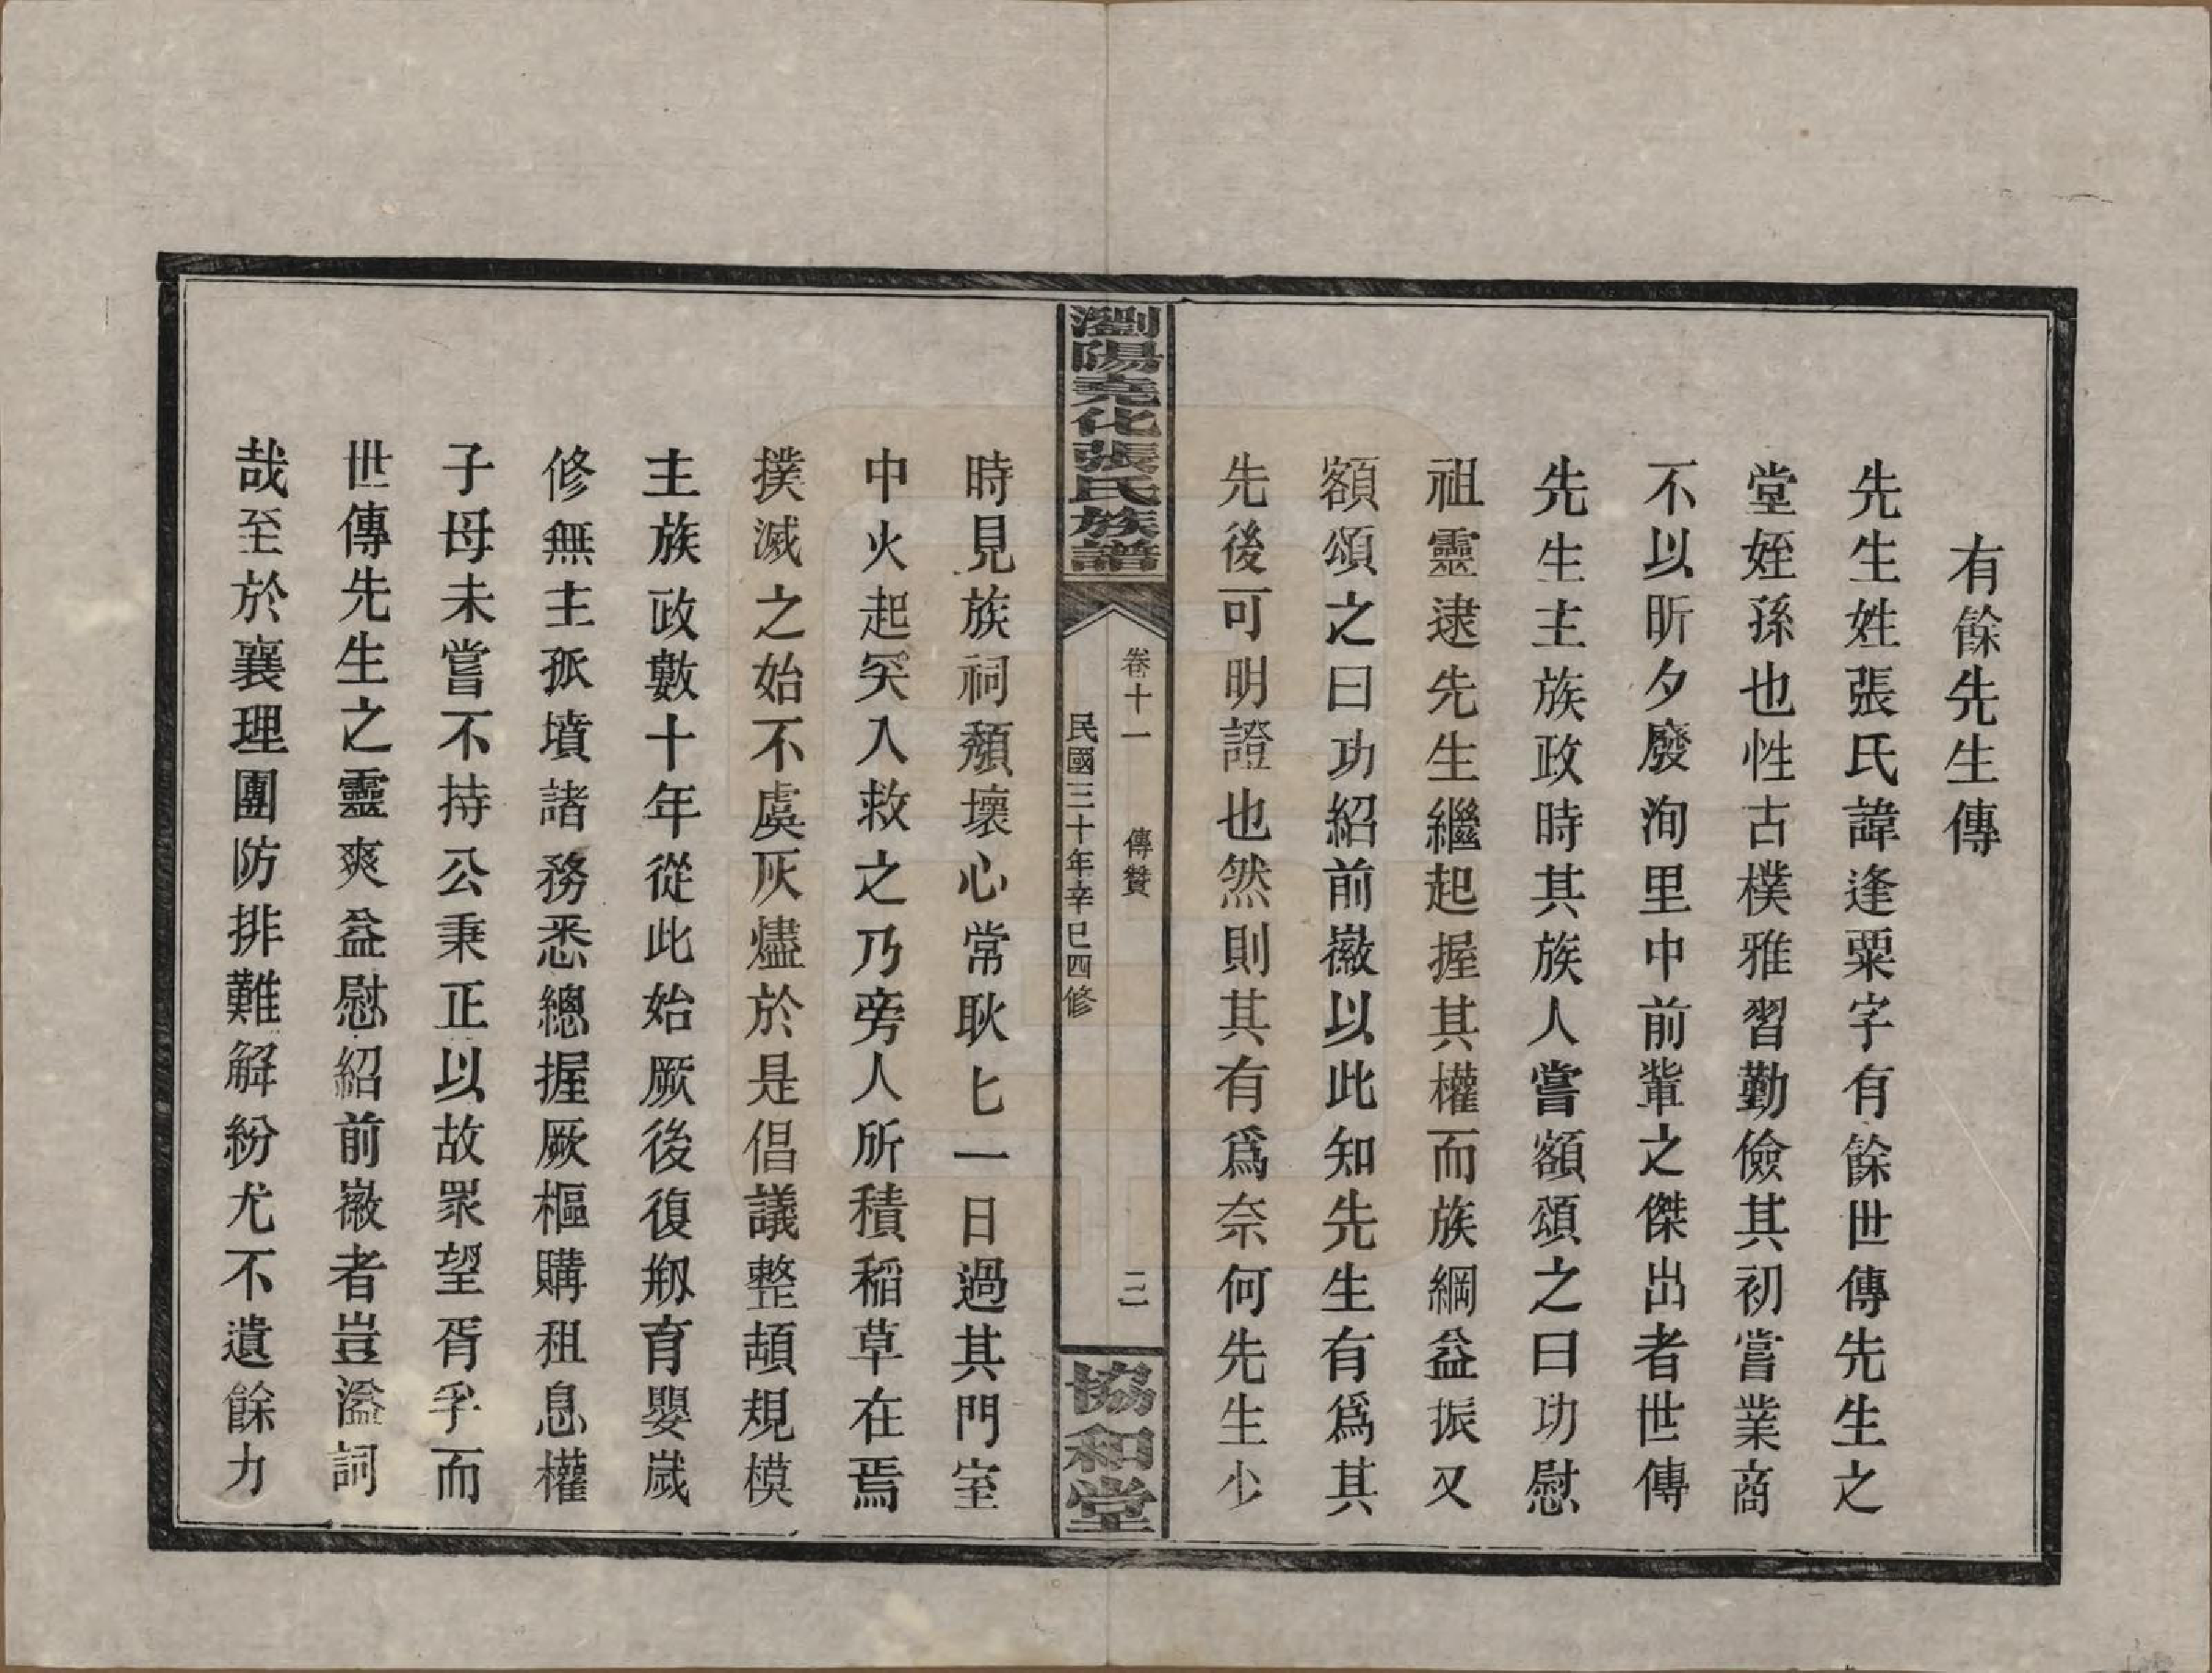 有餘先生傳
先生姓張氏諱逢粟字有餘世傳先生之
堂姪孫也性古樸雅習勤儉其初嘗業商
不以昕夕廢洵里中前輩之傑出者世傳
先生主族政時其族人嘗額頌之曰功慰
祖靈逮先生繼起握其權而族綱益振又
額頌之曰功紹前徽以此知先生有爲其
先後可明證也然則其有爲奈何先生少
瀏陽堯化張氏族譜
卷十一 傳贊 三
民國三十年辛巳四修
協和堂
時見族祠頽壞心常耿匕一日過其門室
中火起突入救之乃旁人所積稲草在焉
撲滅之始不虞灰燼於是倡議整頓規模
主族政數十年從此始厥後復剏育嬰嵗
修無主孤墳諸務悉總握厥樞購租息權
子母未嘗不持公秉正以故眾望胥孚而
世傳先生之靈爽益慰紹前徽者豈溢詞
哉至於襄理團防排難解紛尤不遺餘力